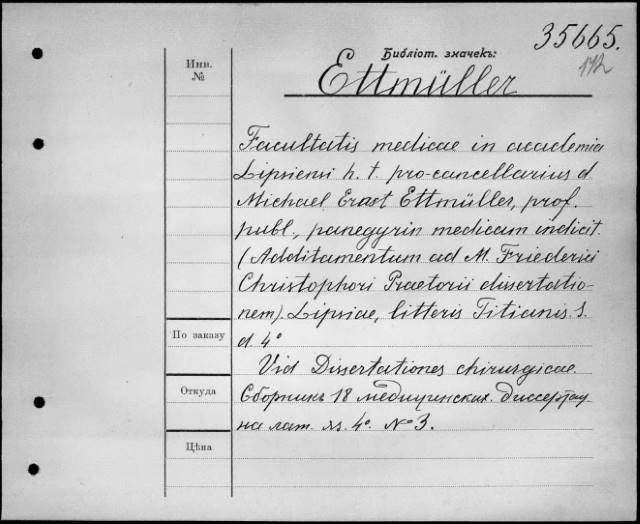 35665.
172
Библіот. значекъ:
Ettmüller
Инв.
№
Facultatis medicae in academia
Lipsiensi h. t. pro-cancellarius d.
Michael Ernst Ettmüller, prof.
publ., panegyrin medicam indicit.
(Additamentum ad M. Friederici
Christophori Praetorii dissertatio-
nem). Lipsiae, litteris Titianis. S.
d. 4°
По заказу
Vid Dissertationes chirurgicae.
Откуда
Сборникъ 18 медицинских. диссертац
на лат. яз. 4°. № 3.
Цѣна